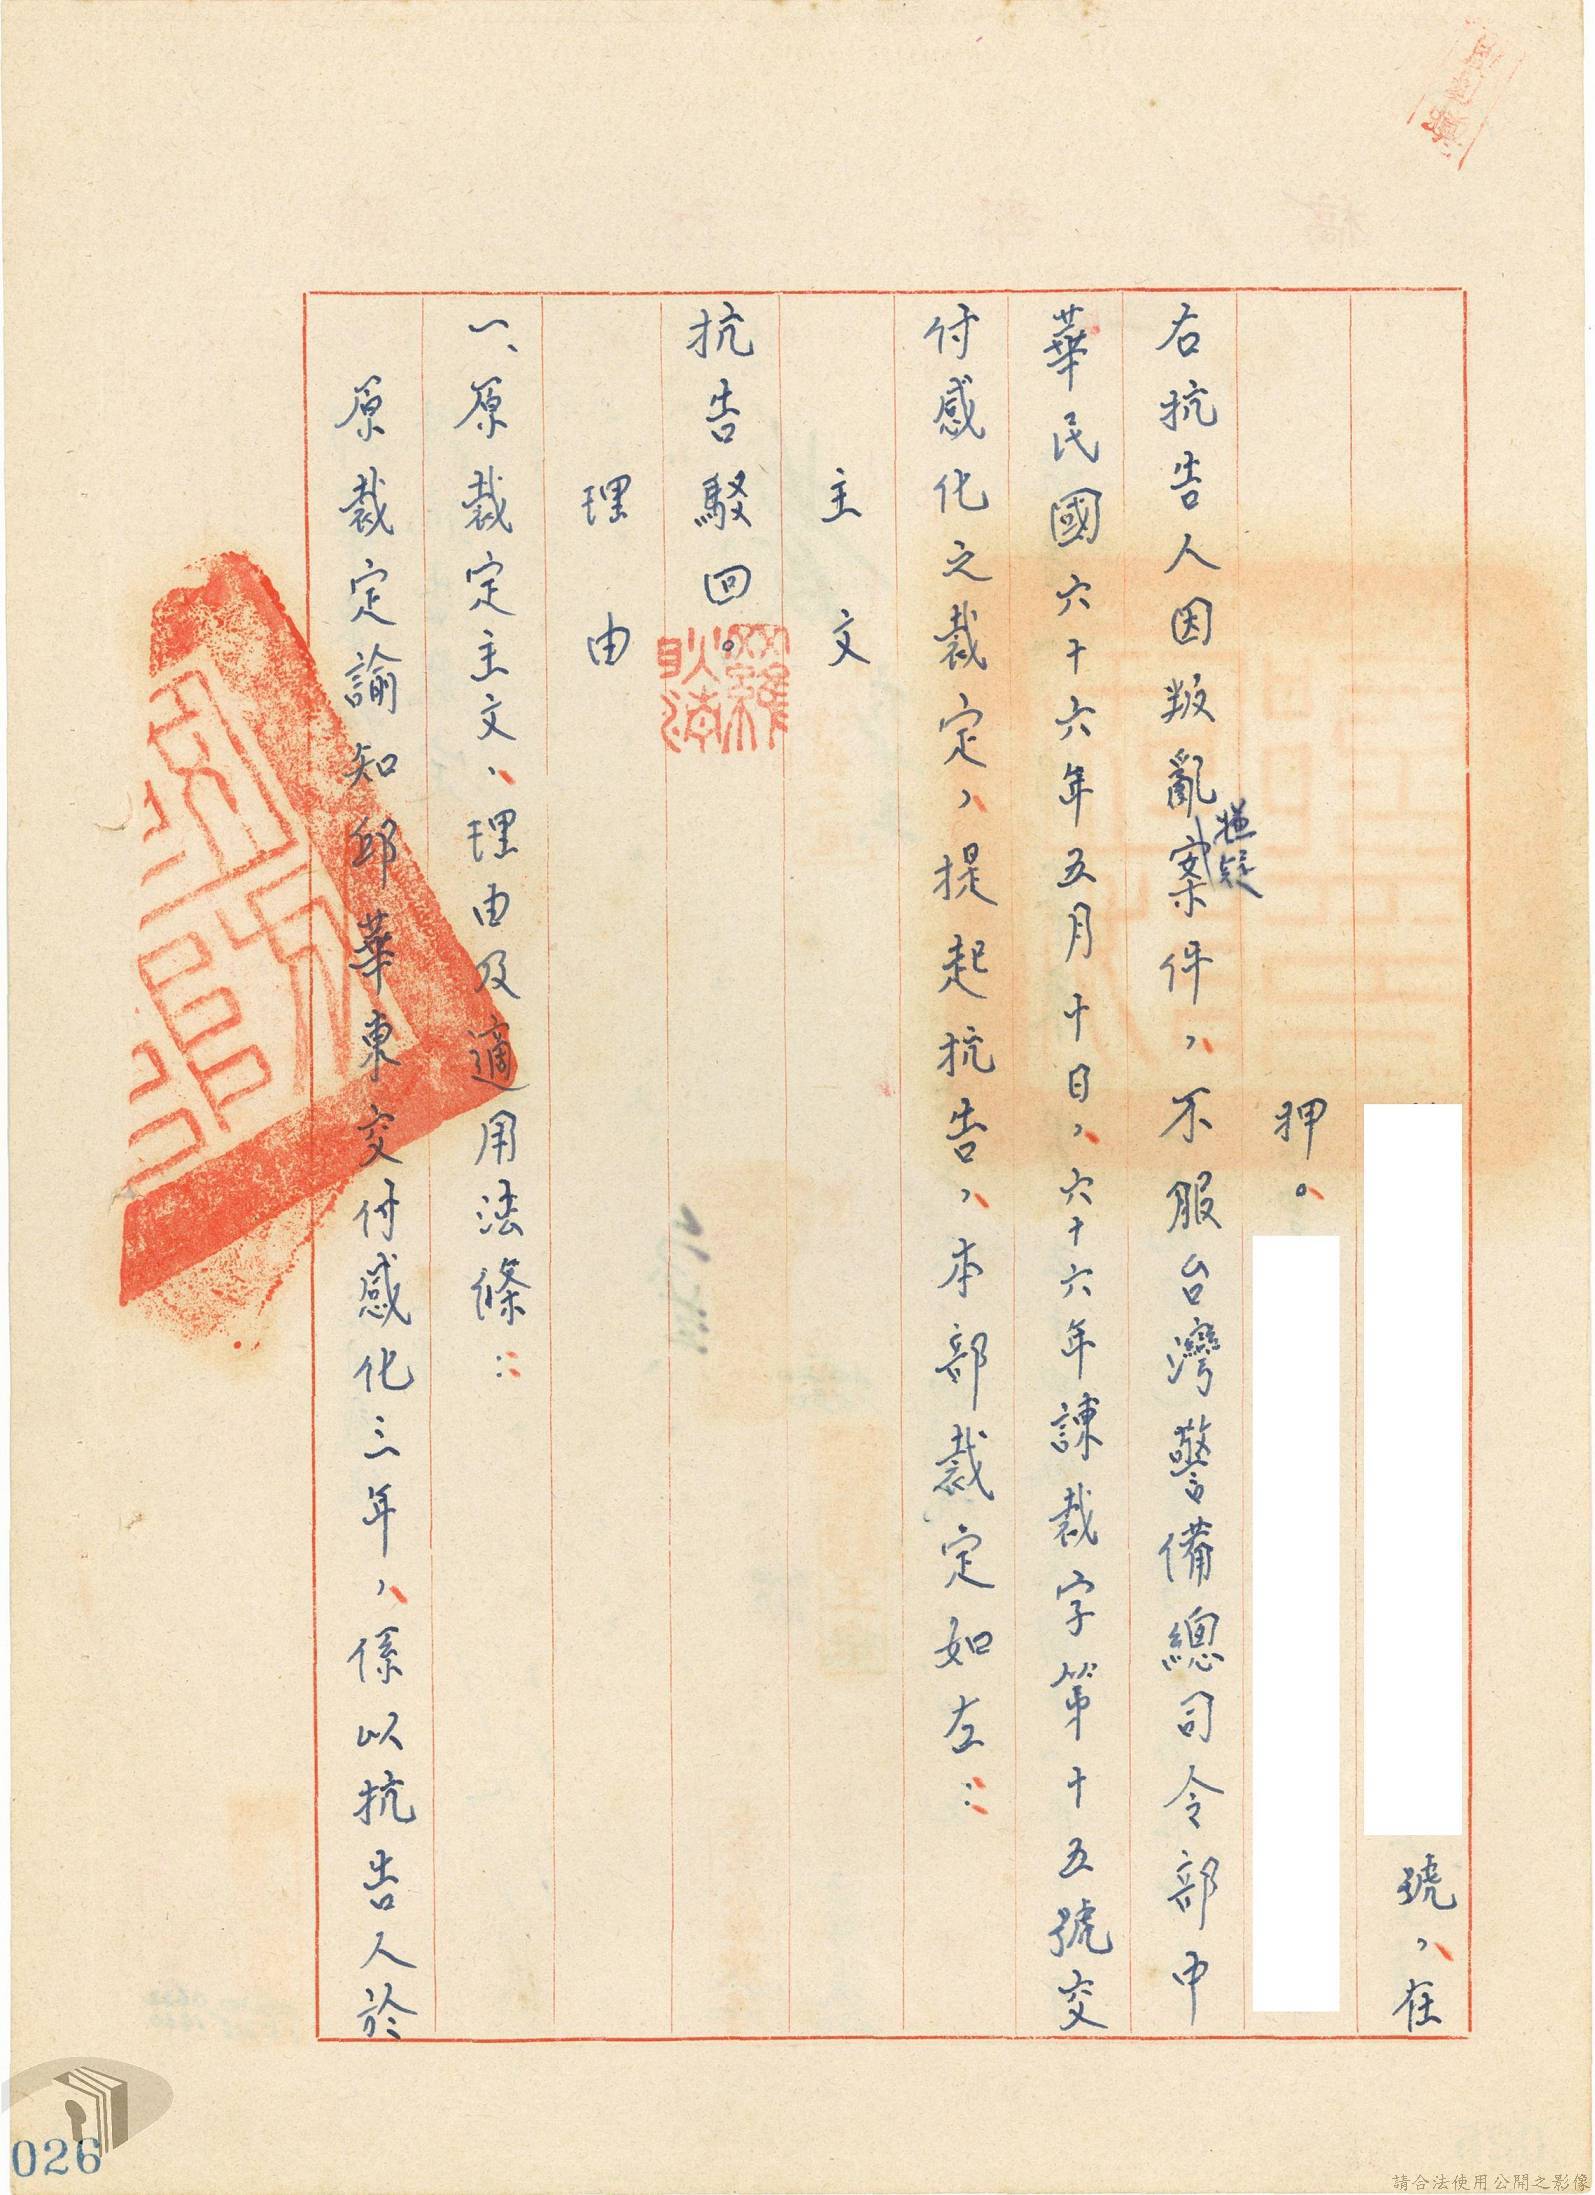 號，在
押。
右抗告人因叛亂嫌疑案件，不服台灣警備總司令部中
華民國六十六年五月十日，六十六年諫裁字第十五號交
付感化之裁定，提起抗告，本部裁定如左：
主文
抗告駁回。
理由
一、原裁定主文、理由及適用法條：
原裁定諭知邱華東交付感化三年，係以抗告人於
026
請合法使用公開之影像